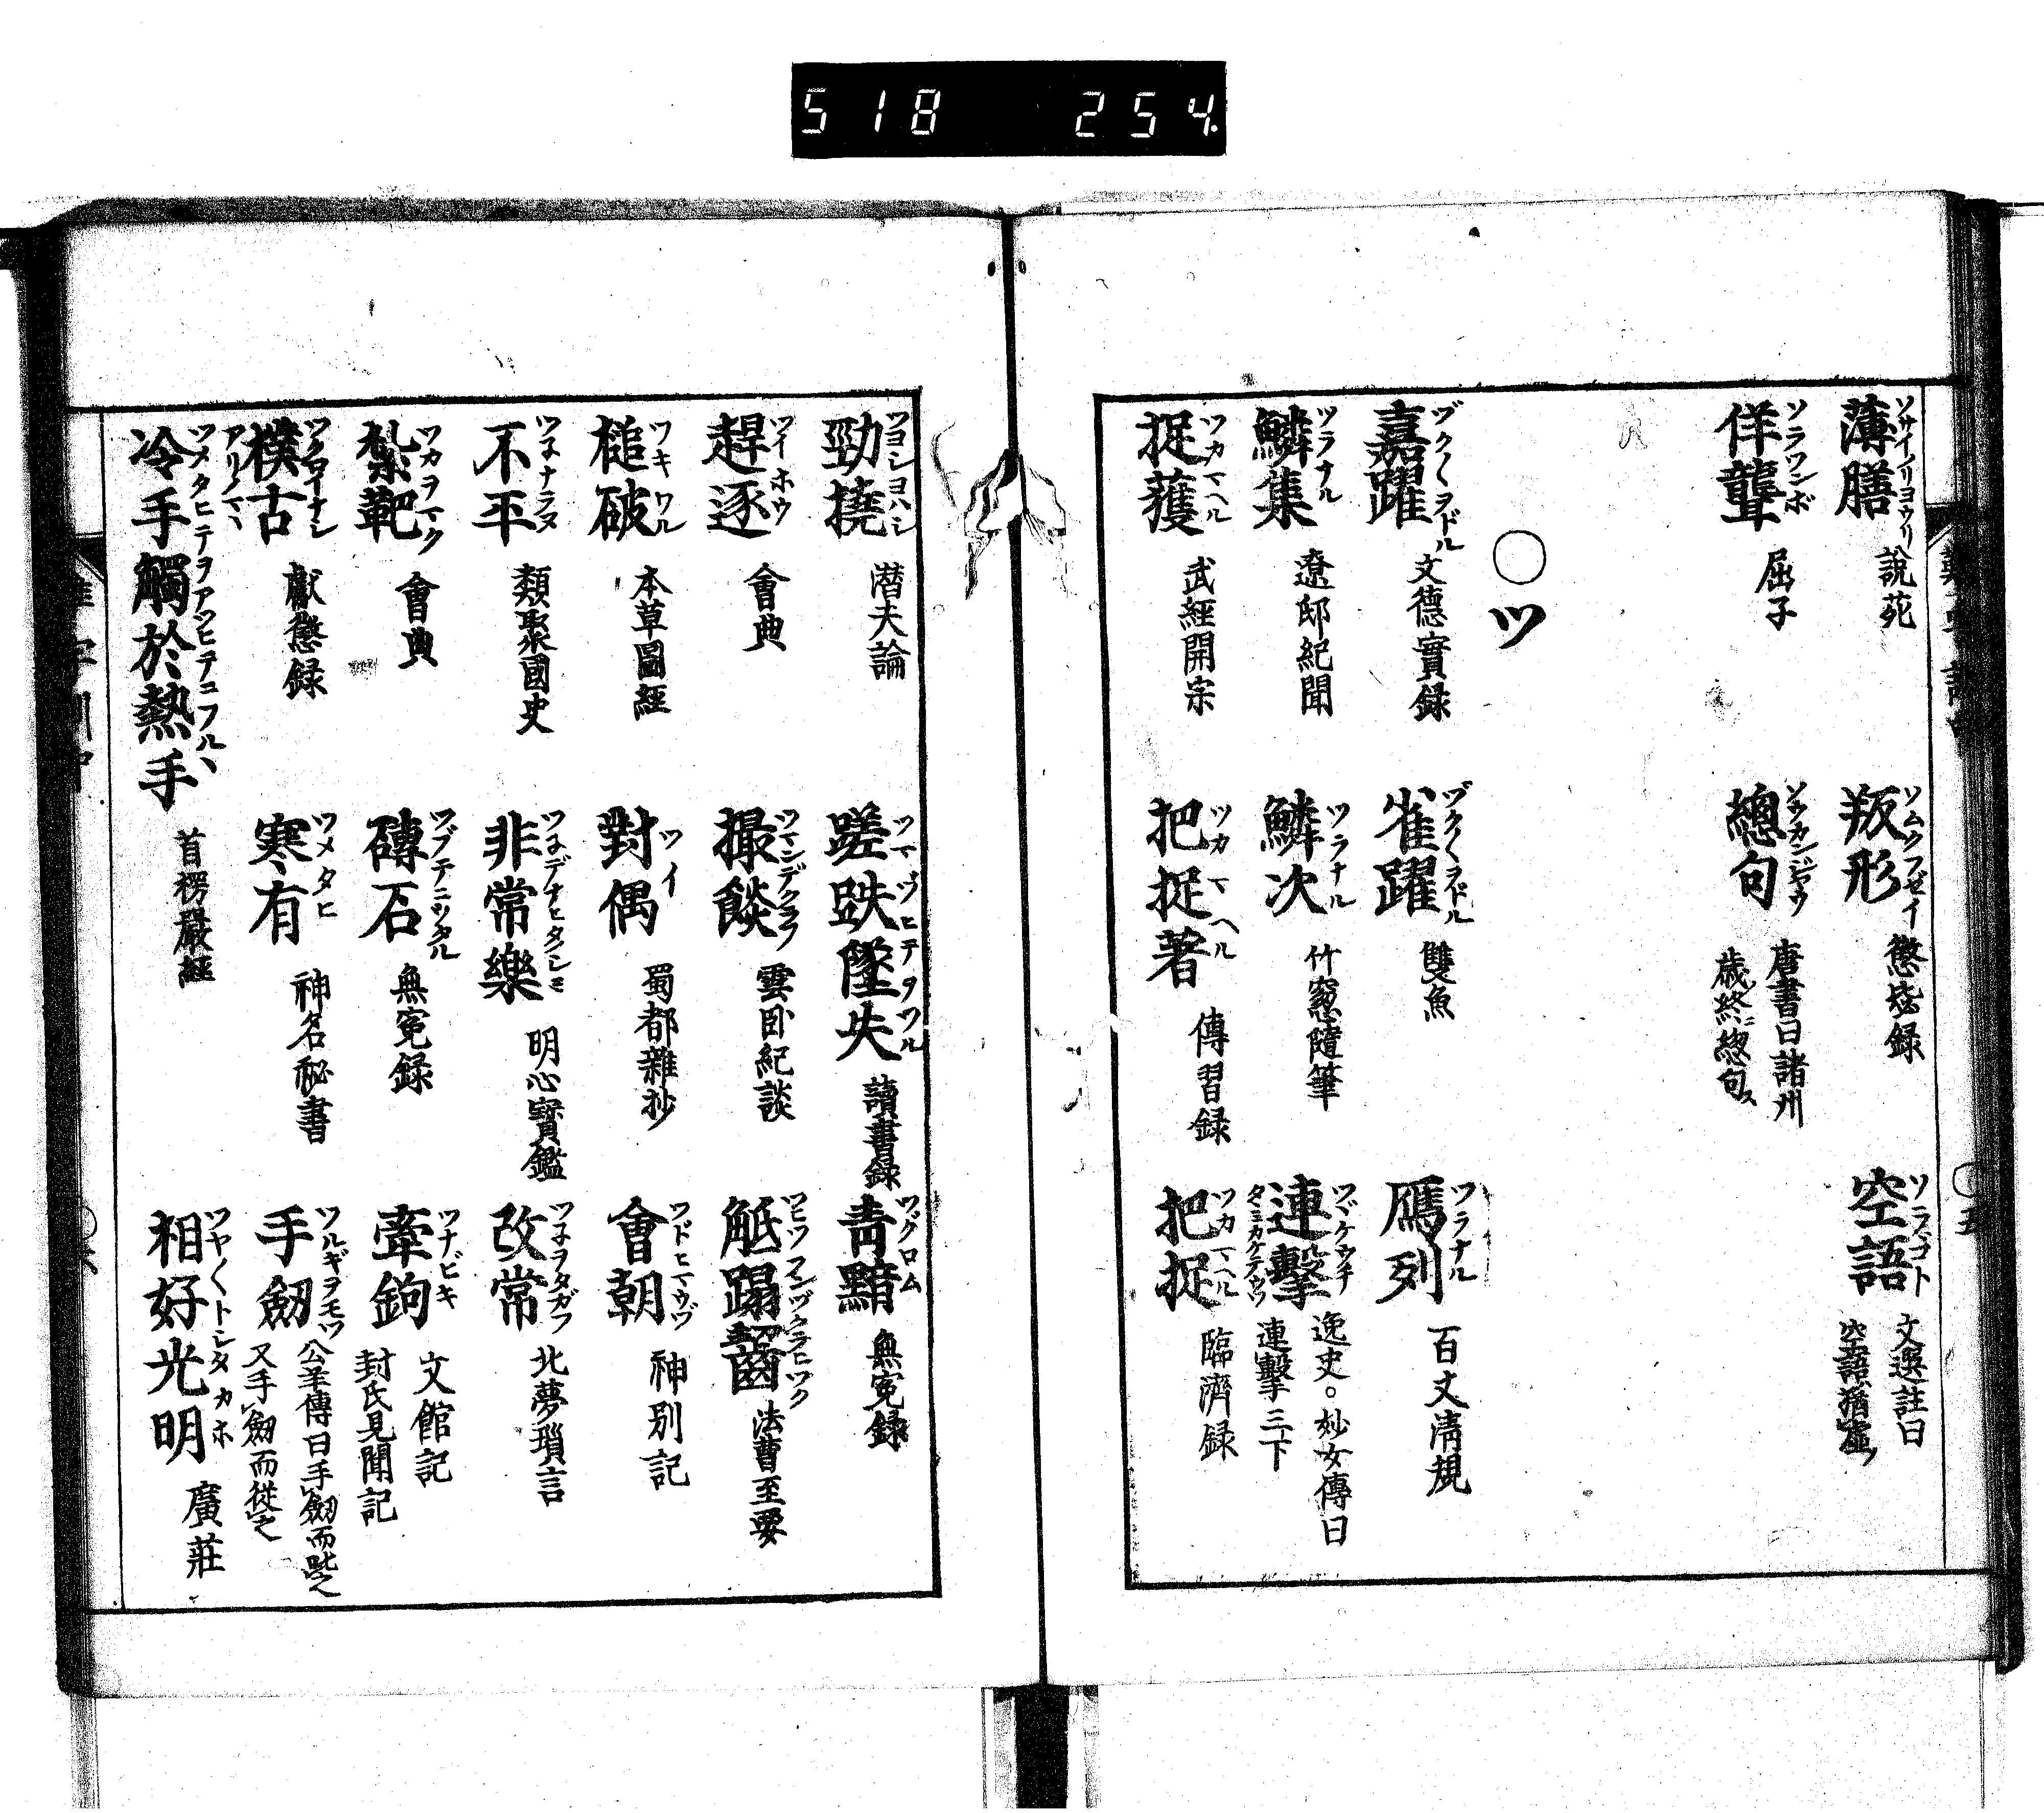 518 254
薄膳 ソサイノリヨウリ 說苑
叛形 ソムクフゼイ 懲毖録
空語 ソラゴト 文選註曰空語猶虛
佯聾 ソラツンボ 屈子
總句 ソウカンジヤウ 唐書曰諸州歳終總句
○ツ
嘉躍 ヅク〱ヲドル 文德實録
雀躍 ヅク〱ヲドル 雙魚
鴈列 ツラナル 百丈淸規
鱗集 ツラナル 遼邸紀聞
鱗次 ツラナル 竹窓隨筆
連擊 ツヾケウチ 逸史。妙女傳曰連擊三下
捉獲 ツカマヘル 武經開宗
把捉著 ツカマヘル 傳習録
把捉 ツカマヘル 臨濟録
勁撓 ツヨシヨハシ 潜夫論
蹉跌墜失 ツマヅヒテヲツル 讀書録
靑黯 ツヾクロム 無寃録
趕逐 ツイホウ 會典
撮餤 ツマンデクラフ 雲卧紀談
觝蹋齧 法曹至要
槌破 ツキワル 本草圖經
對偶 ツイ 蜀都雜抄
會朝 ツドヒマウヅ 神別記
不平 ツネナラヌ 類聚國史
非常樂 ツネデナヒタノシミ 明心寳鑑
改常 ツネヲタガフ 北夢瑣言
紮靶 ツカヲマク 會典
磚石 無寃録
牽鉤 ツナビキ 文館記 封氏見聞記
樸古 ツクロイナシ 獻懲録
寒有 ツメタヒ 神名秘書
手劔 ツルギヲモツ 公羊傳曰手劔而叱之又手劔而從之
冷手觸於熱手 ツメタヒテヲアツヒテニフルヽ 首楞嚴經
相好光明 ツヤ〱トシタカホ 廣莊